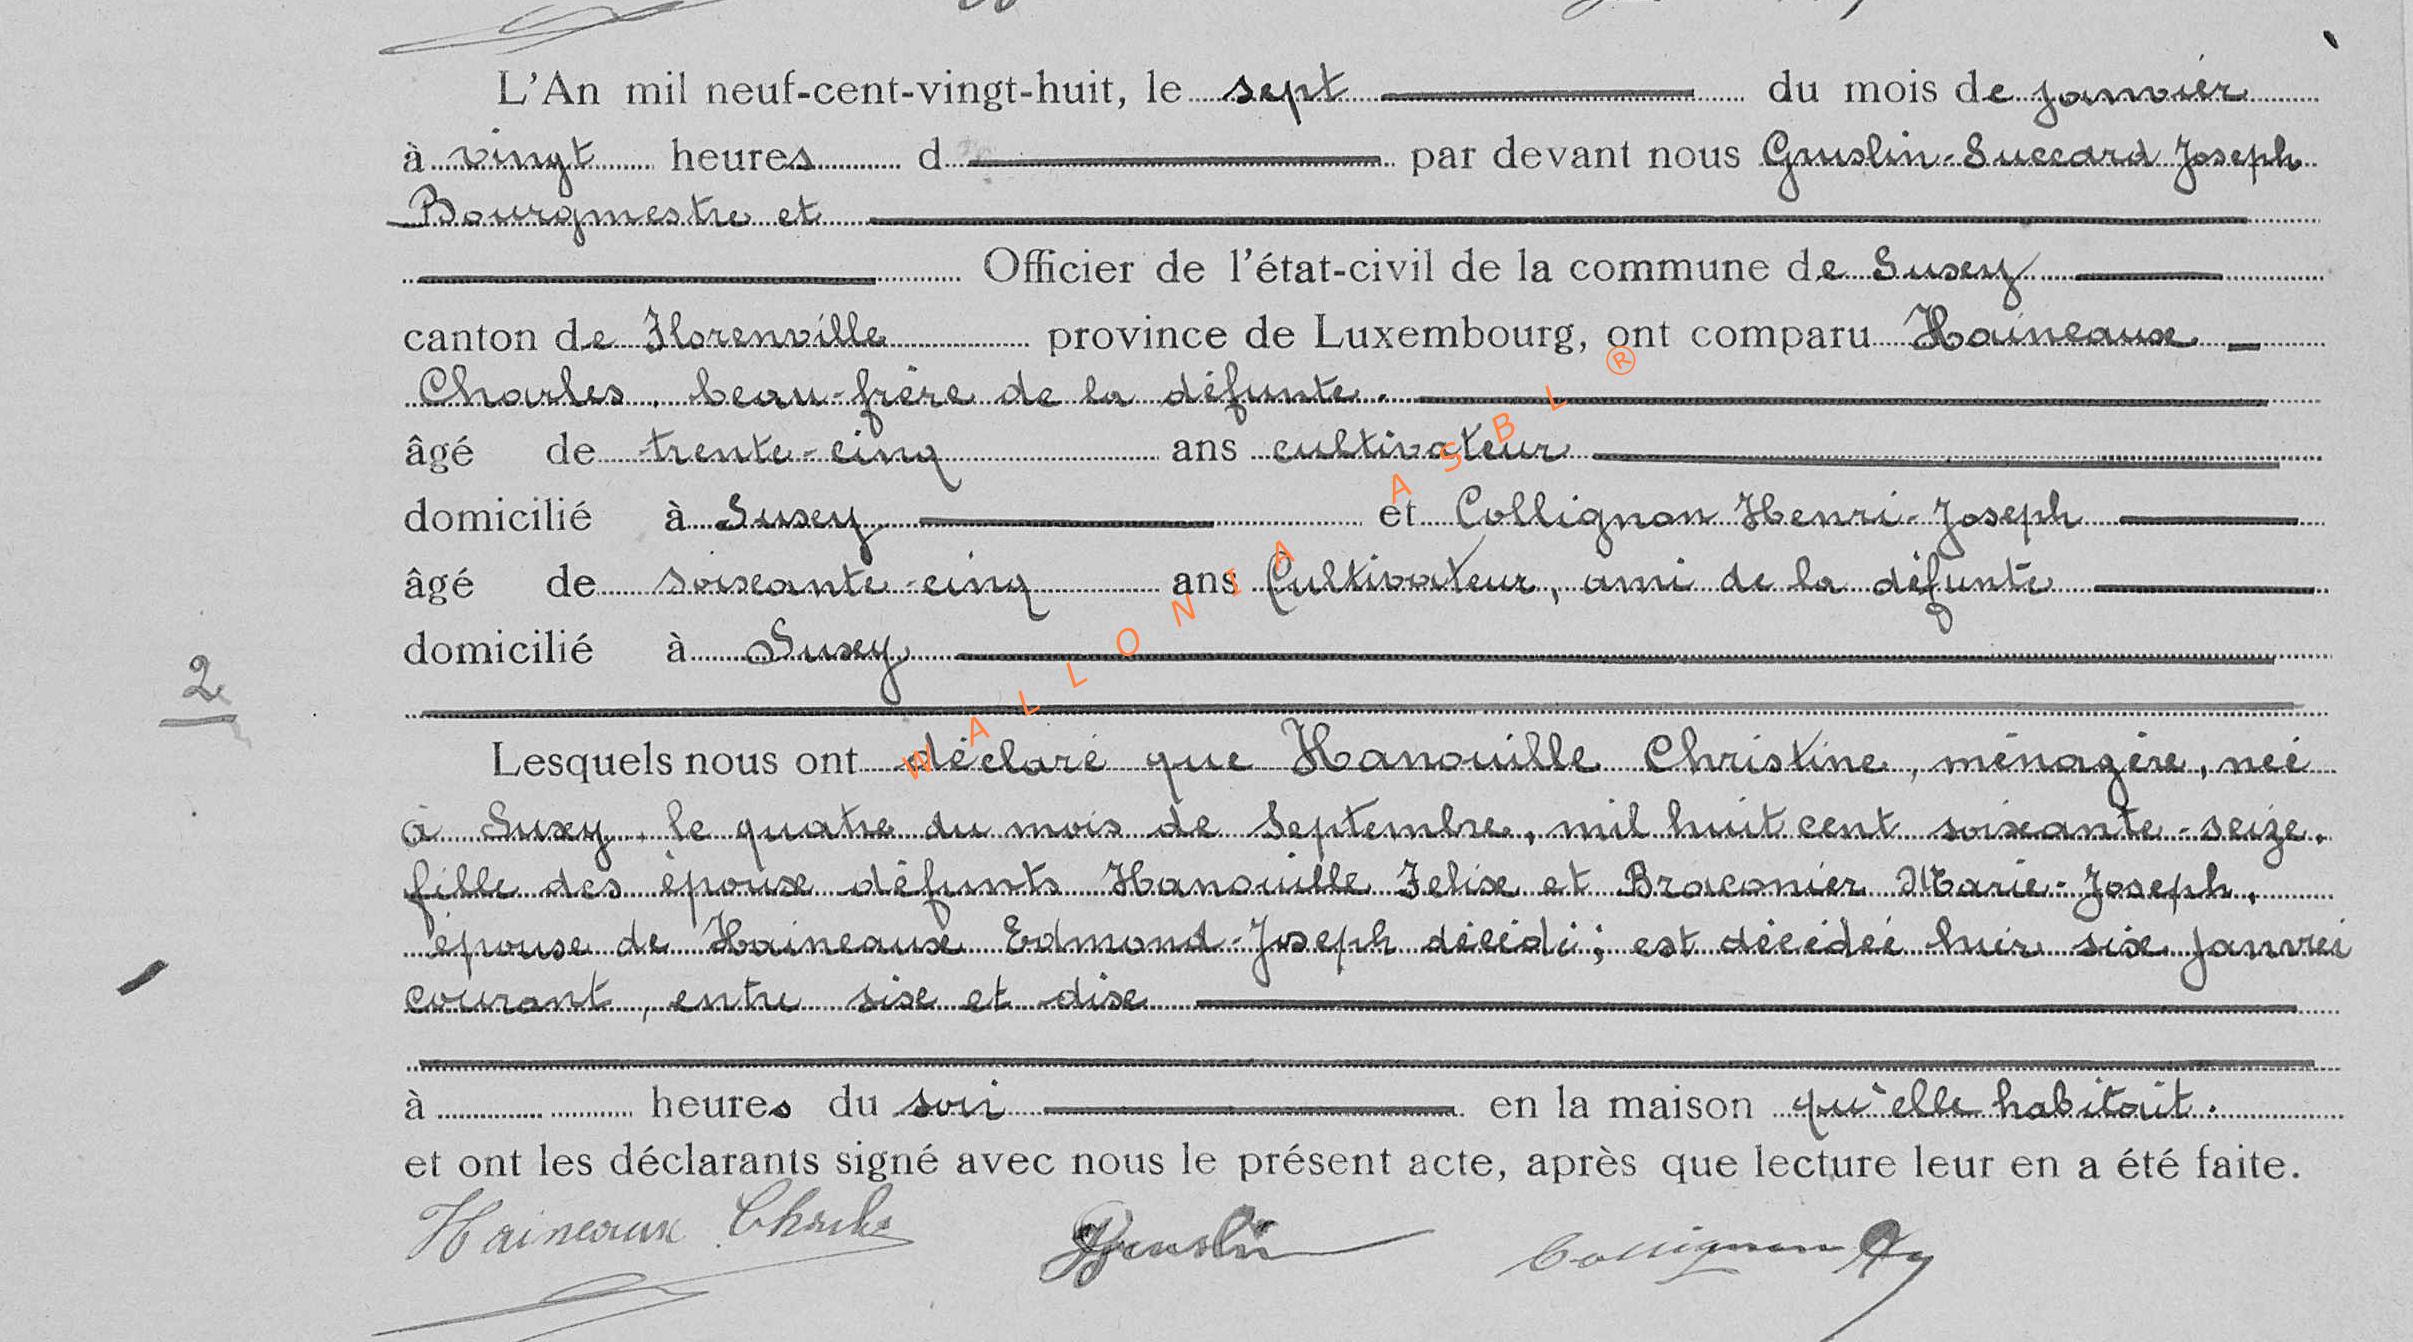 L'An mil neuf-cent-vingt-huit, le sept du mois de janvier
à vingt heures d par devant nous Gruslin-Succard Joseph
Bourgmestre et
Officier de l'état-civil de la commune de Suxy
canton de Florenville province de Luxembourg, ont comparu Haineaux
Charles, beau-frère de la défunte.
âgé de trente-cinq ans cultivateur
domicilié à Suxy et Collignon Henri-Joseph
âgé de soixante-cinq ans Cultivateur, ami de la défunte
domicilié à Suxy
2
Lesquels nous ont déclaré que Hanouille Christine, ménagère, neé
à Suxy, le quatre du mois de Septembre, mil huit cent soixante-seize,
fille des époux défunts Hanouille Felix et Braconier Marie-Joseph,
épouse de Haineaux Edmond-Joseph décédé; est décedeé hier six janvier
courant, entre six et dix
à heures du soir en la maison qu'elle habitait.
et ont les déclarants signé avec nous le présent acte, après que lecture leur en a été faite.
Haineaux Charles Gruslin Collignon Hy
WALLONIA ASBL ®